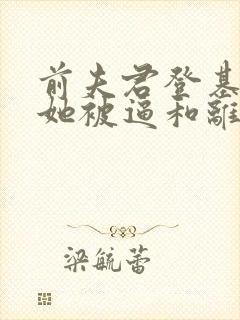 前夫君登基
她被逼和離
梁毓蕾